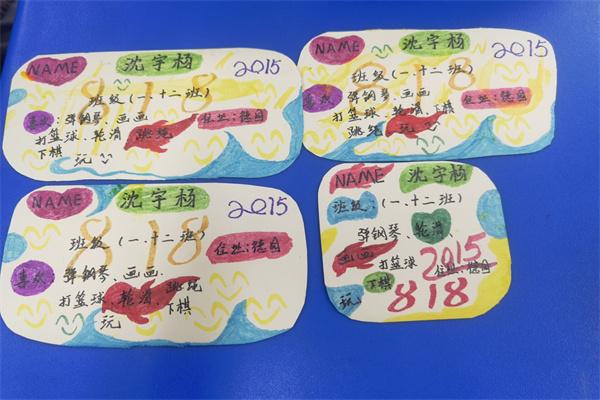 NAME 沈宇杨 2015
班级(一.十二班)
818
喜欢:弹钢琴、画画 住址:德园
打篮球、轮滑 跳绳
下棋
玩
NAME 沈宇杨 2015
班级(一.十二班)
818
喜欢 弹钢琴、画画 住址:德园
打篮球、轮滑、下棋
跳绳 玩
NAME 沈宇杨 2015
818
班级(一.十二班) 住址:德园
喜欢: 弹钢琴、画画. 跳绳
打篮球、轮滑、下棋
玩
NAME 沈宇杨
班级:(一.十二班)
弹钢琴、轮滑
画画 打篮球 2015
下棋 住址:德园
玩 818